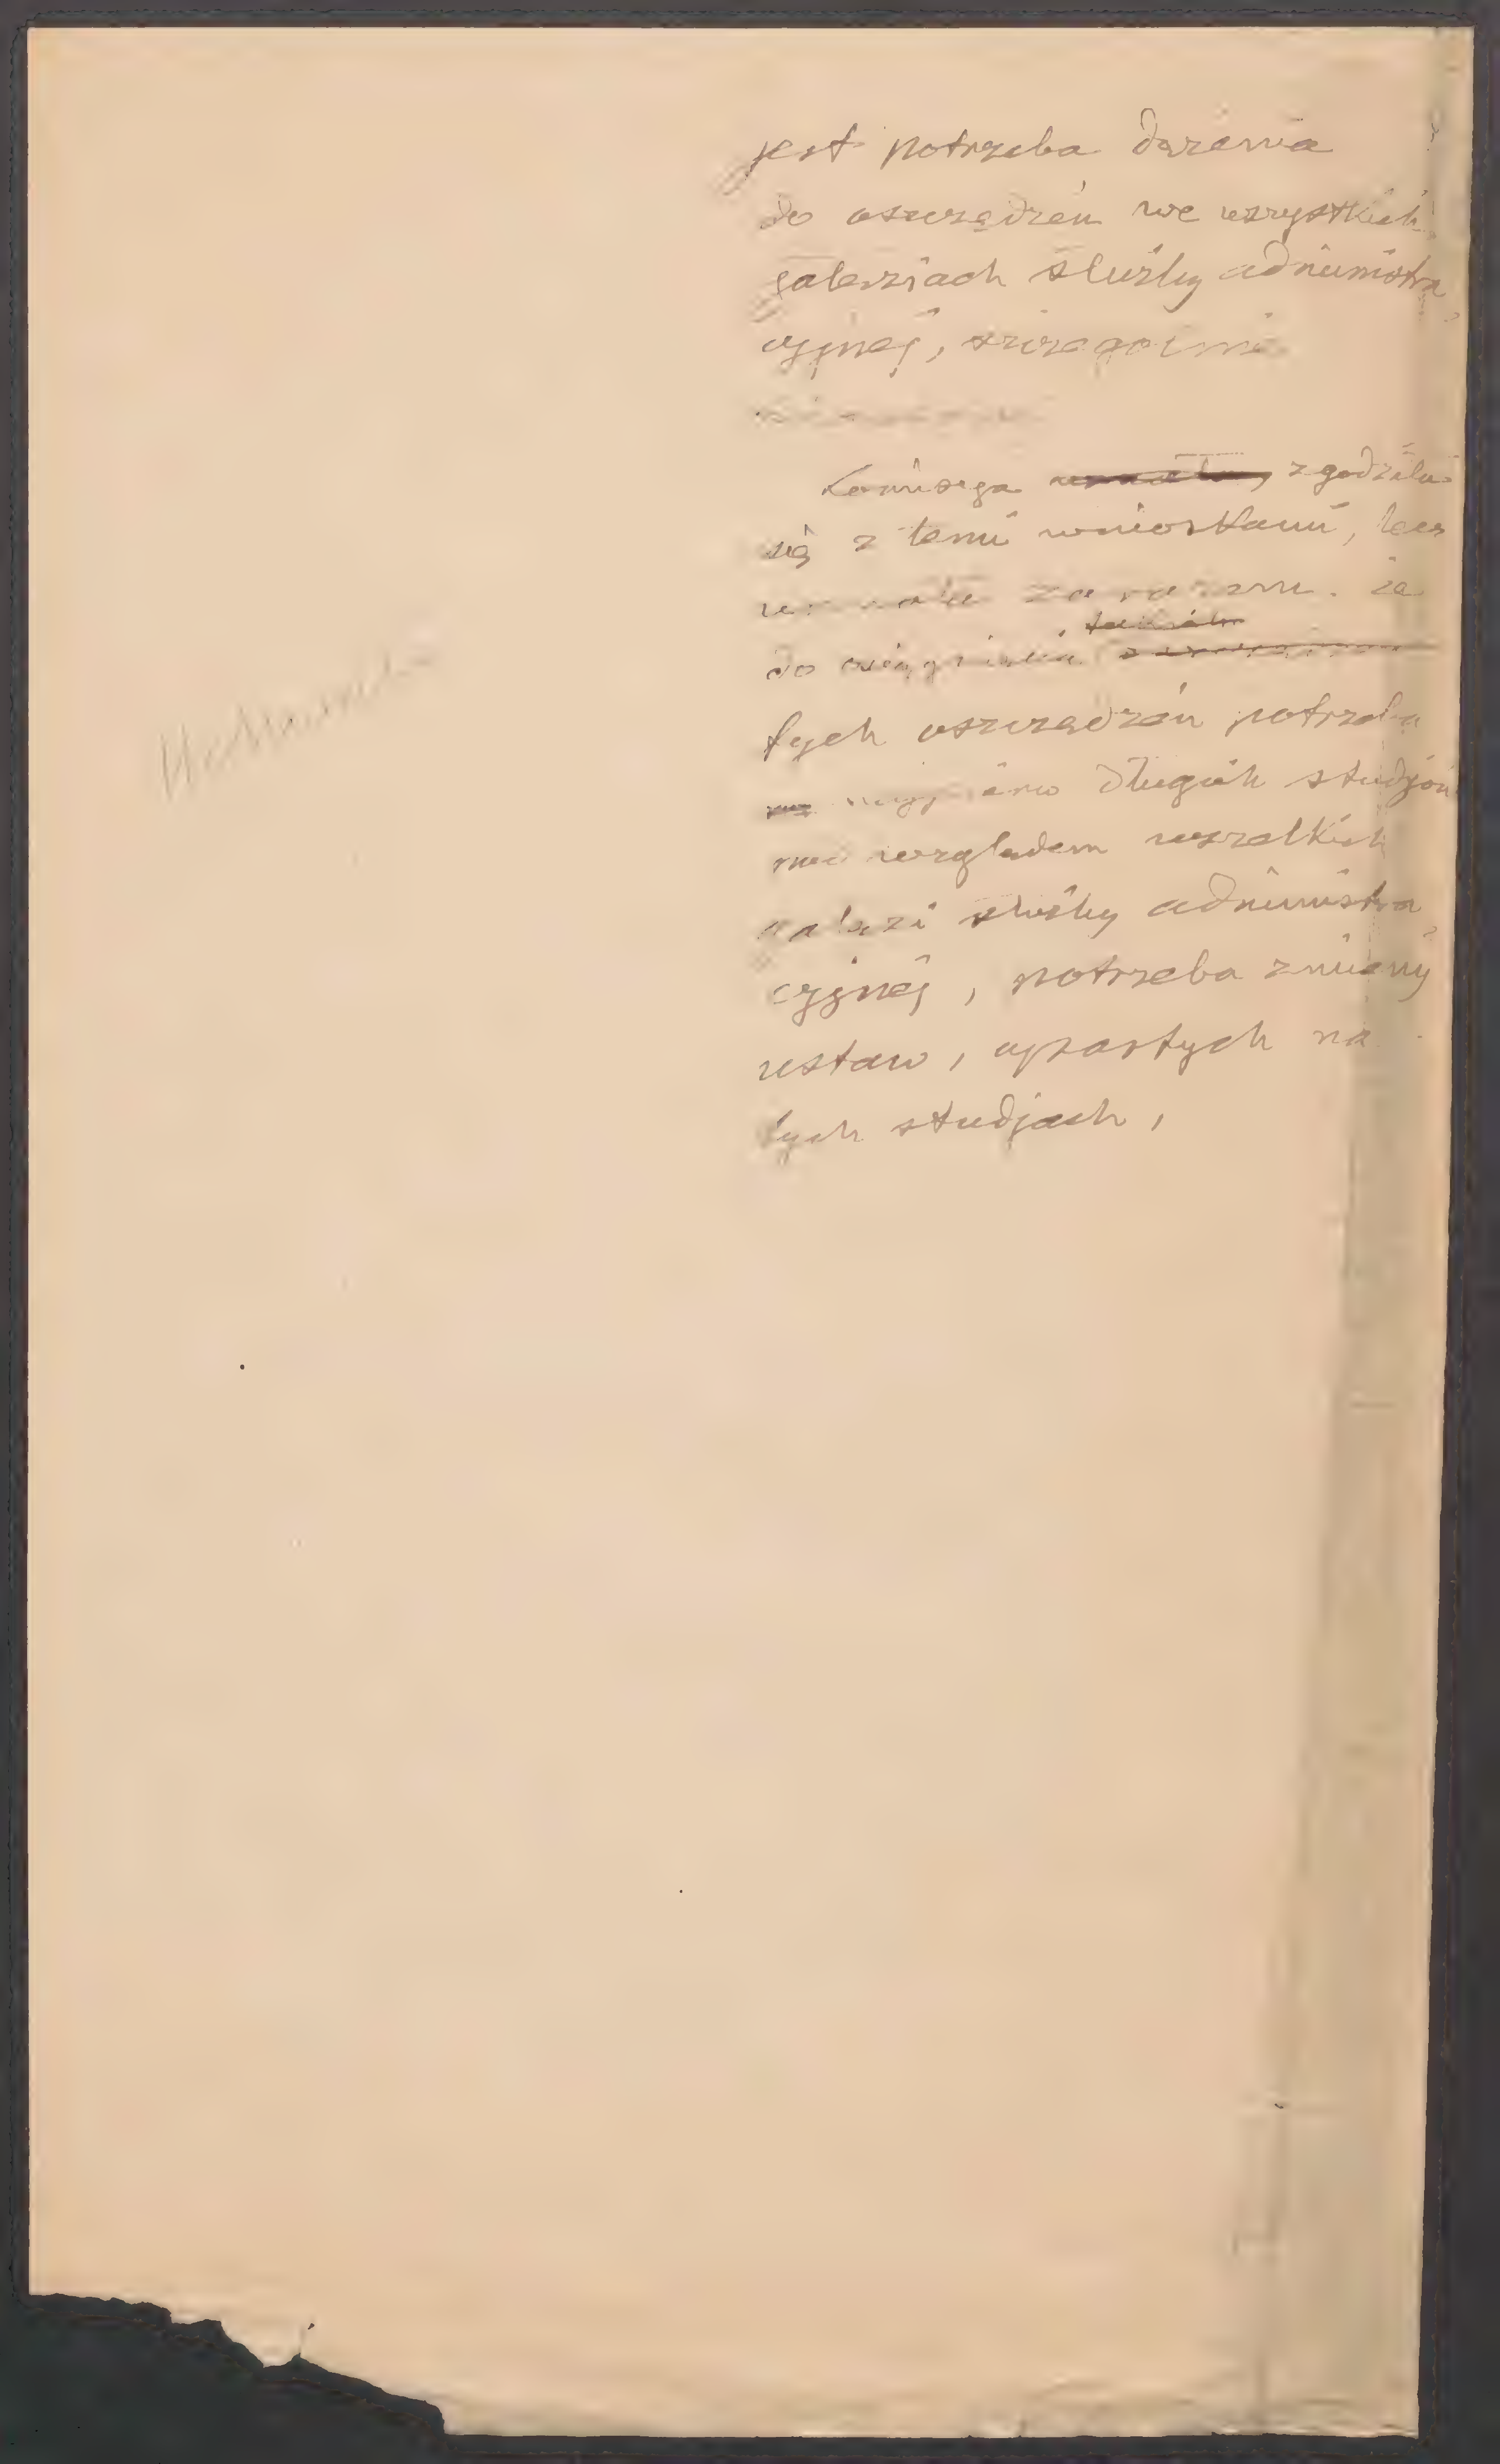 jest potrzeba dążenia
do oszczędzeń we wszystkich
gałęziach służby administra
cyjnej, szczególnie
Komisya uznała, zgodziła
się z temi wnioskami, lecz
uznała zarazem. że
do osiągnienia
tych oszczędzeń potrzeba
długich studjów
nad względem wszelkich
gałęzi służby administra
cyjnej, potrzeba zmiany
ustaw, opartych na
tych studjach,